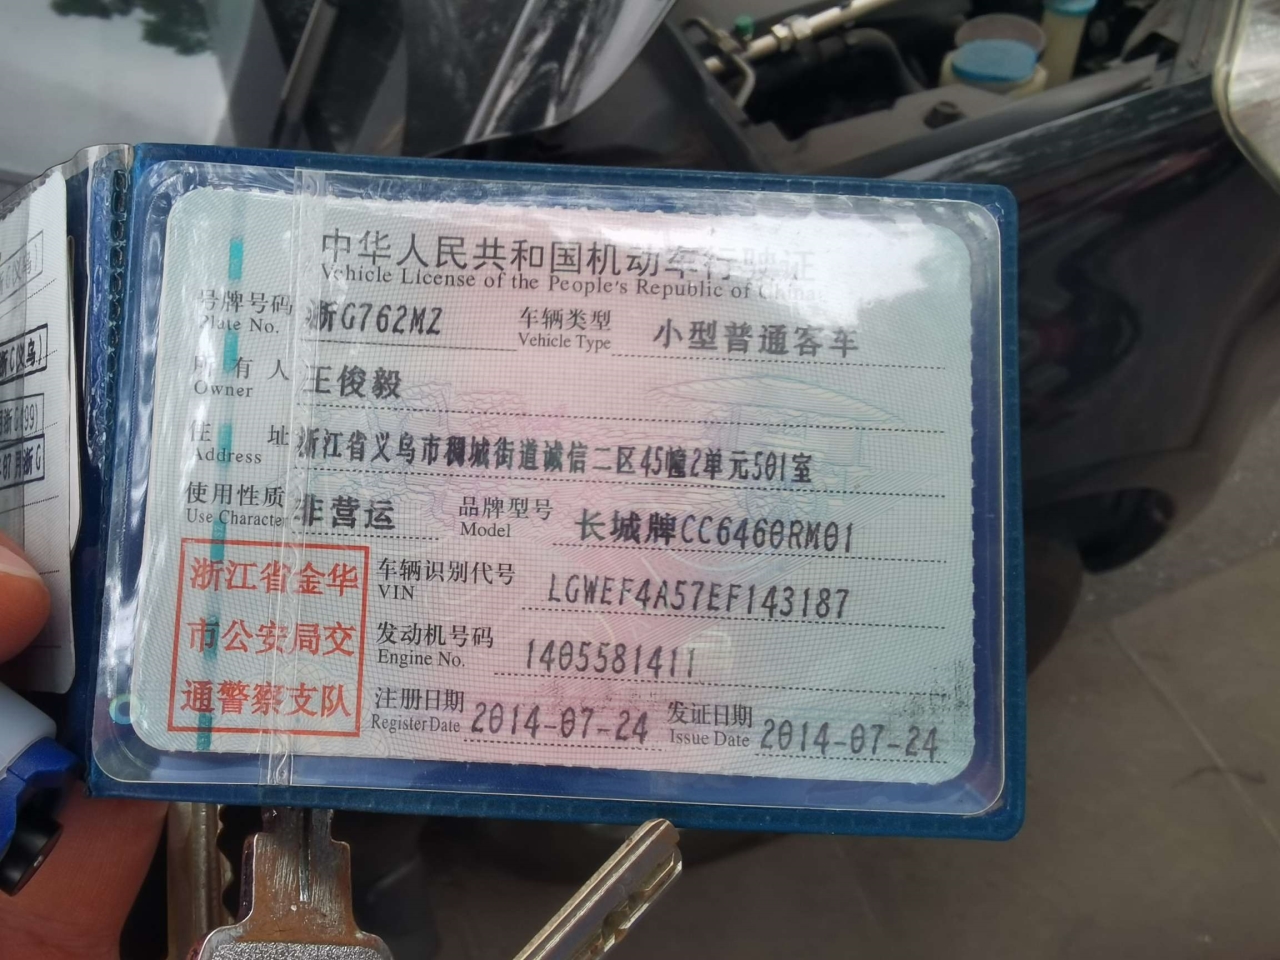 中华人民共和国机动车行驶证
Vehicle License of the People's Republic of China
号牌号码 浙G762MZ 车辆类型 小型普通客车
Plate No. Vehicle Type
所有人 王俊毅
Owner
住址 浙江省义乌市稠城街道诚信二区45幢2单元501室
Address
使用性质 非营运 品牌型号 长城牌CC6460RM01
Use Character Model
浙江省金华
市公安局交
通警察支队
车辆识别代号 LGWEF4A57EF143187
VIN
发动机号码 1405581411
Engine No.
注册日期 2014-07-24 发证日期 2014-07-24
Register Date Issue Date